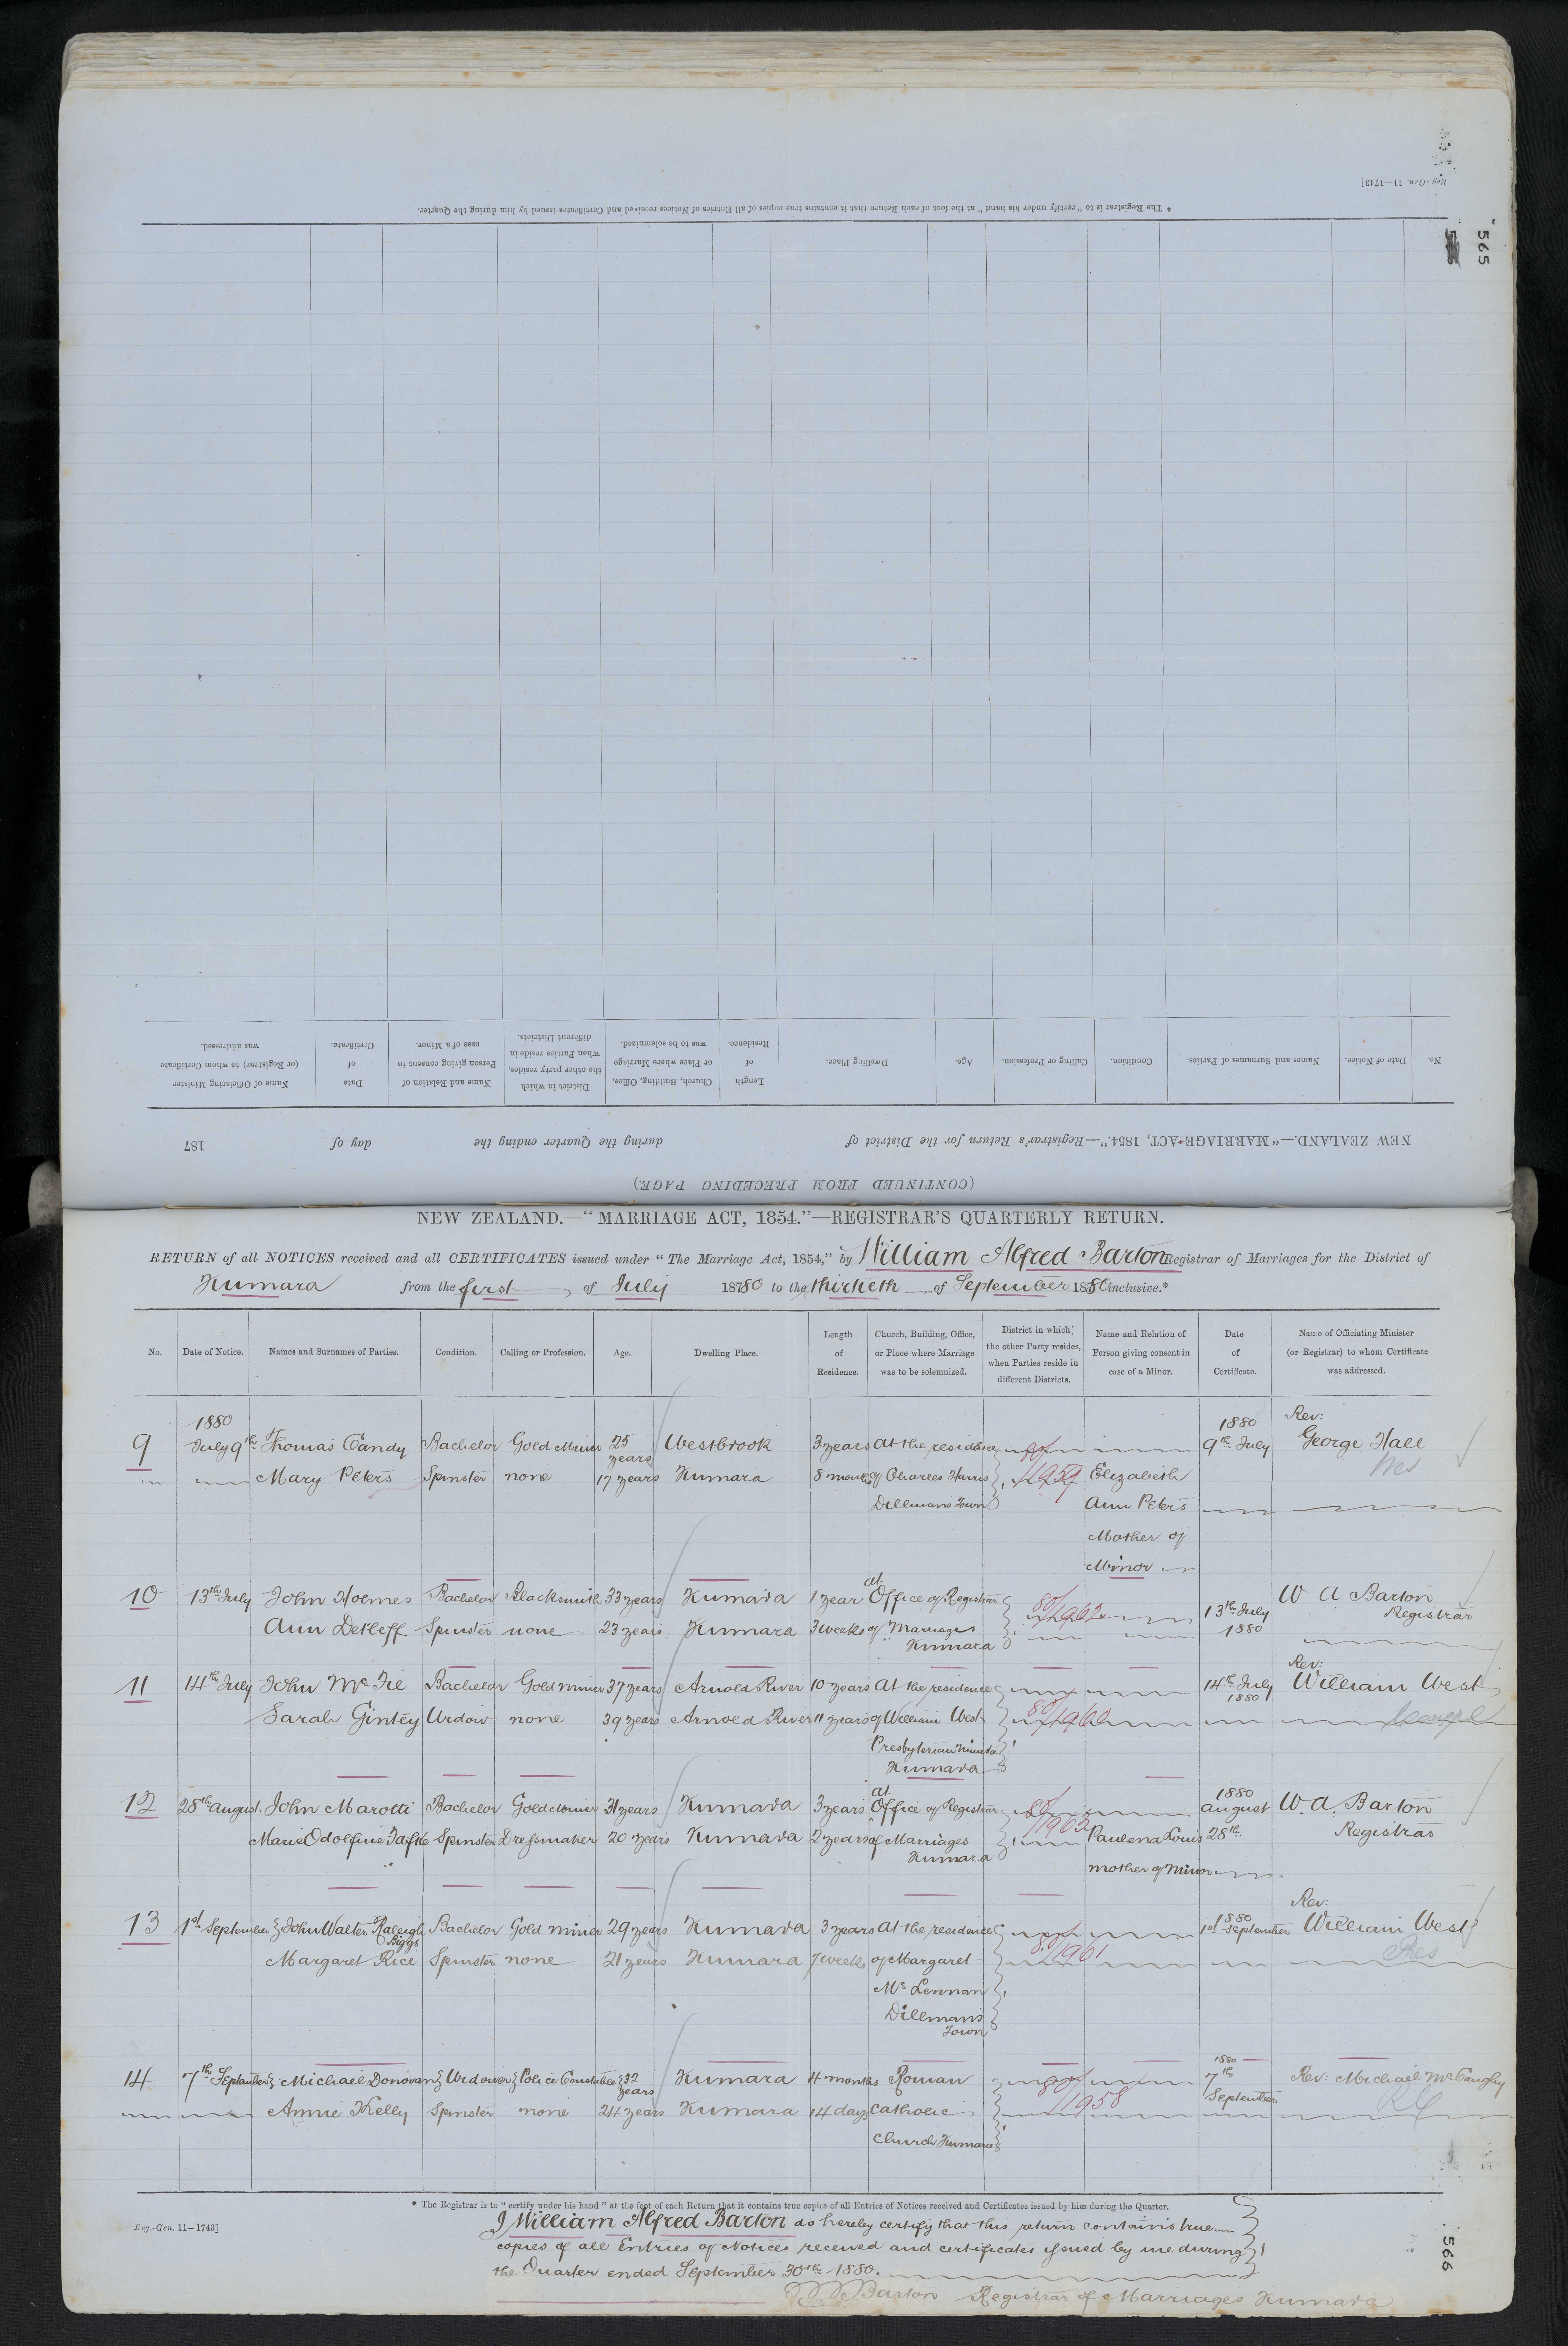 Reg.-Gen. 11—1743]
565
* The Registrar is to "certify under his hand" at the foot of each Return that it contains true copies of all Entries of Notices received and Certificates issued by him during the Quarter.
No. Date of Notice. Names and Surnames of Parties. Condition. Calling or Profession. Age. Dwelling Place. Length of Residence. Church, Building, Office, or Place where Marriage was to be solemnized. District in which the other party resides, when Parties reside in different Districts. Name and Relation of Person giving consent in case of a Minor. Date of Certificate. Name of Officiating Minister (or Registrar) to whom Certificate was addressed.
NEW ZEALAND.—"MARRIAGE ACT, 1854."—Registrar's Return for the District of during the Quarter ending the day of 187
(CONTINUED FROM PRECEDING PAGE.)
NEW ZEALAND.—"MARRIAGE ACT, 1854."—REGISTRAR'S QUARTERLY RETURN.
RETURN of all NOTICES received and all CERTIFICATES issued under "The Marriage Act, 1854," by William Alfred Barton Registrar of Marriages for the District of
Kumara from the first of July 18780 to the thirtieth of September 1880 inclusive.*
No. Date of Notice. Names and Surnames of Parties. Condition. Calling or Profession. Age. Dwelling Place. Length of Residence. Church, Building, Office, or Place where Marriage was to be solemnized. District in which the other Party resides, when Parties reside in different Districts. Name and Relation of Person giving consent in case of a Minor. Date of Certificate. Name of Officiating Minister (or Registrar) to whom Certificate was addressed.
1880 1880 Rev:
9 July 9th Thomas Candy Bachelor Gold Miner 25 years Westbrook 3 years At the residence 80/ 9th July George Hall
Mary Peters Spinster none 17 years Kumara 8 months of Charles Harris 1959 Elizabeth Pres
Dillmans Town Ann Peters
Mother of
Minor
10 13th July John Holmes Bachelor Blacksmith 33 years Kumara 1 year at Office of Registrar 80/1962 13th July 1880 W A Barton
Ann Detleff Spinster none 23 years Kumara 3 weeks of Marriages Registrar
Kumara
11 14th July John McTie Bachelor Gold miner 37 years Arnold River 10 years At the residence 14th July 1880 Rev: William West
Sarah Gintey Widow none 39 years Arnold River 11 years of William West 80/1960
Presbyterian Minister
Kumara
12 28th August John Marotti Bachelor Gold miner 31 years Kumara 3 years at Office of Registrar 80/1963 1880 August W. A. Barton
Marie Spinster Dressmaker 20 years Kumara 2 years of Marriages Paulena Louis 28th Registrar
Kumara mother of Minor
13 1st September John Walter Raleigh Biggs Bachelor Gold miner 29 years Kumara 3 years At the residence 1880 1st September Rev: William West
Margaret Rice Spinster none 21 years Kumara 7 weeks of Margaret 80/1961 Pres
McLennan
Dillmans
Town
14 7th September Michael Donovan Widower Police Constable 32 years Kumara 4 months Roman 80/ 1880 7th September Rev: Michael
Annie Kelly Spinster none 24 years Kumara 14 days Catholic 1958 RC
Church Kumara
* The Registrar is to "certify under his hand" at the foot of each Return that it contains true copies of all Entries of Notices received and Certificates issued by him during the Quarter.
Reg.-Gen. 11—1743]
I William Alfred Barton do hereby certify that this return contains true
copies of all Entries of Notices received and certificates issued by me during
the Quarter ended September 30th 1880.
Barton Registrar of Marriages Kumara
566